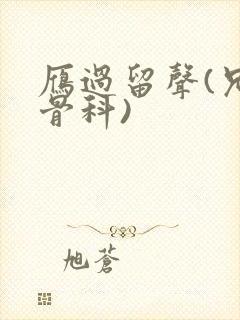 雁過留聲(兄
骨科)
旭蒼